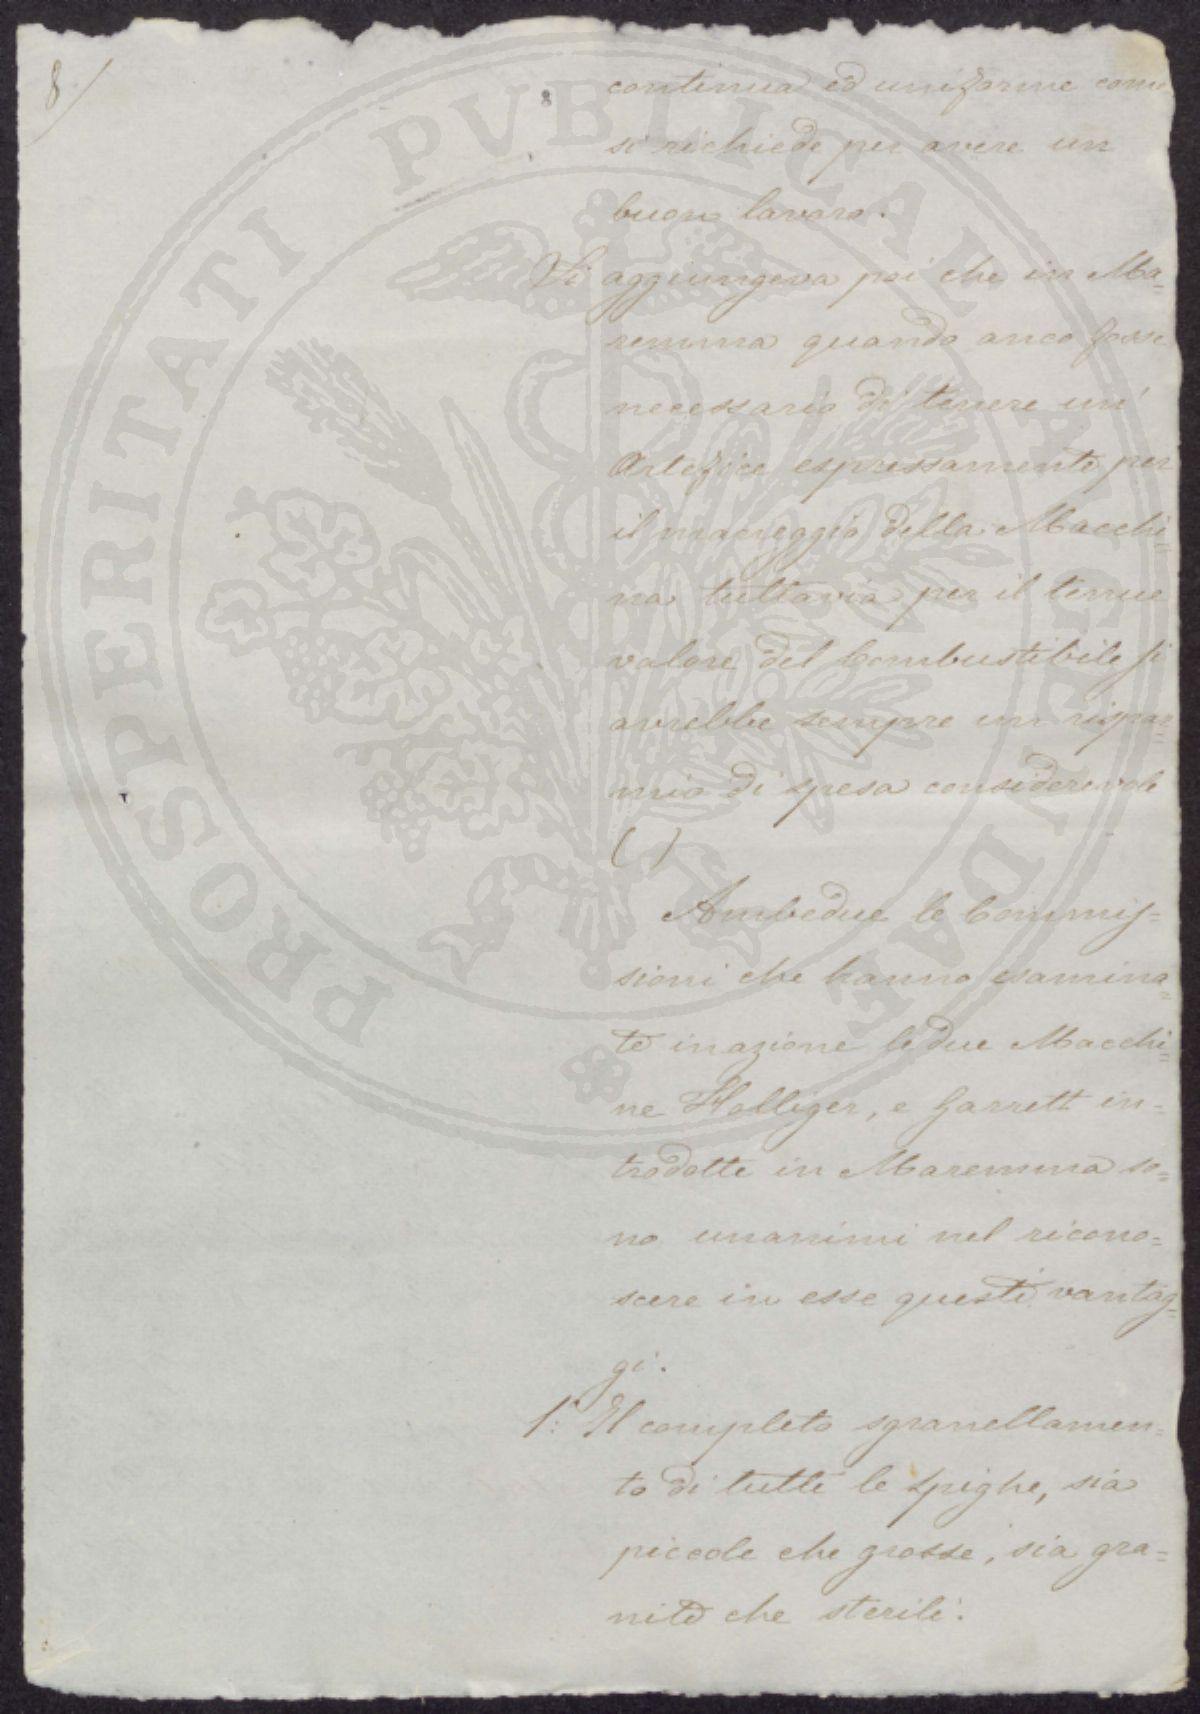 8/
continua ed uniforme come
si richiede per avere un
buon lavoro.
Si aggiungeva poi che in Ma=
remma quando anco fosse
necessario di tenere un'
Artefice espressamente per
il maneggio della Macchi=
na tuttavia per il tenue
valore del Combustibile si
avrebbe sempre un rispar=
mio di spesa considerevole
( )
Ambedue le Commis=
sioni che hanno esamina=
te in azione le due Macchi=
ne Holliger, e Garrett in=
trodotte in Maremma so=
no unanimi nel ricono=
scere in esse questi vantag=
gi.
1.° Il completo sgranellamen=
to di tutte le spighe, sia
piccole che grosse, sia gra=
nite che sterili.
PROSPERITATI PVBLICAE AVGENDAE